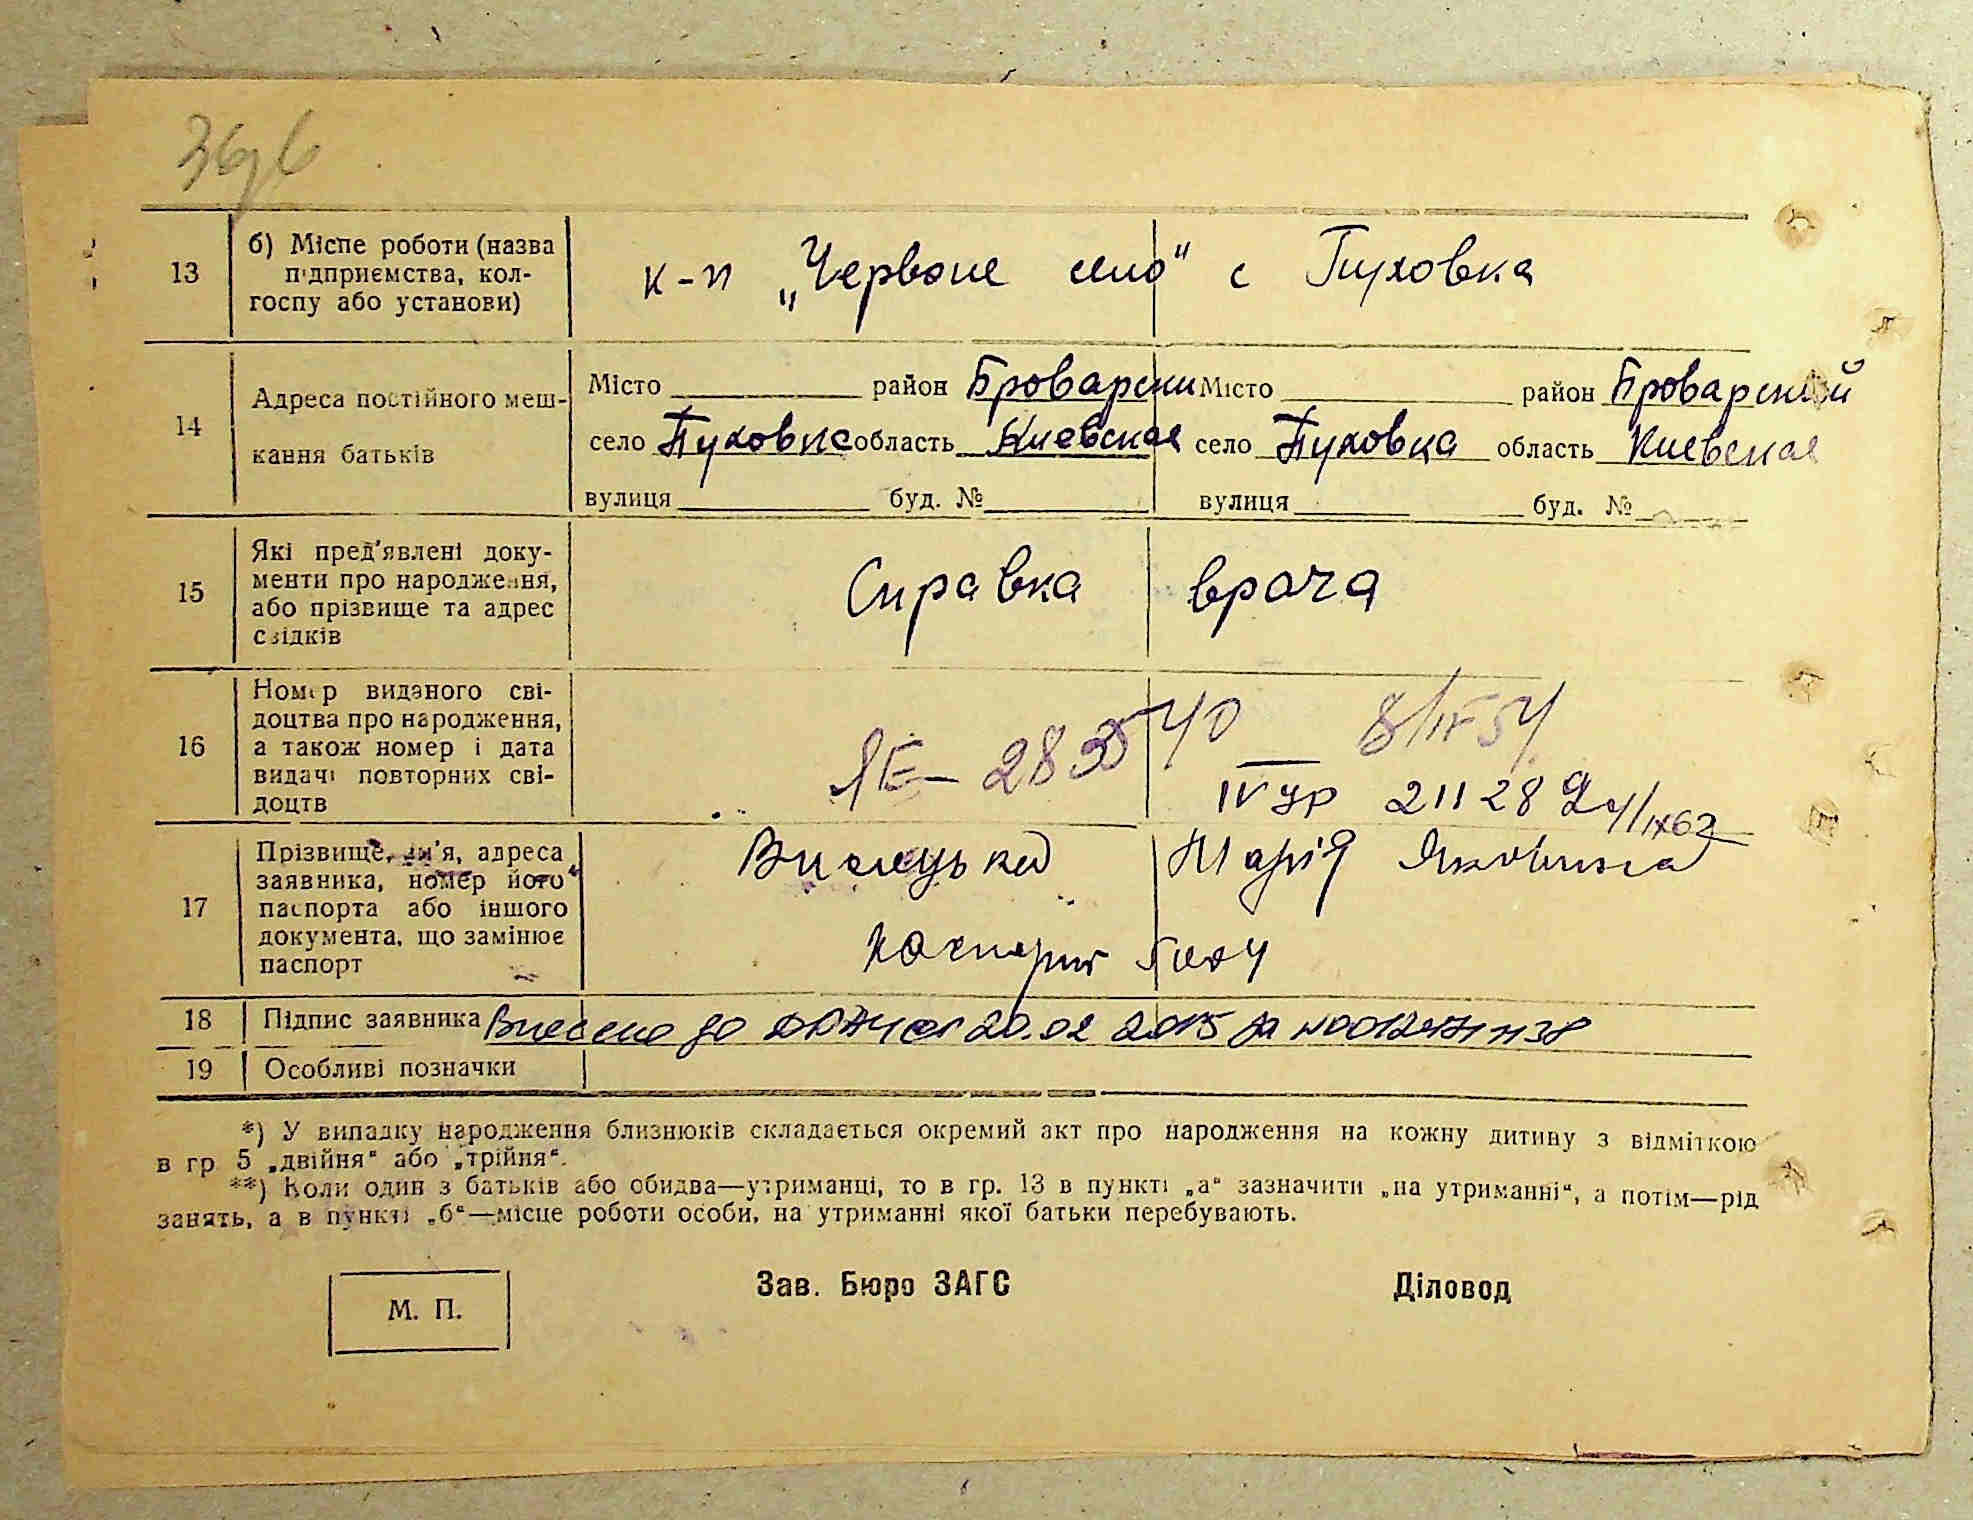 13
б) Місце роботи (назва
підприємства, кол-
госпу або установи)
к-п „Червоне село" с Пуховка
14
Адреса постійного меш-
кання батьків
Місто район Броварски Місто район Броварский
село Пуховка область Киевская село Пуховка область Киевская
вулиця буд. № вулиця буд. №
15
Які пред'явлені доку-
менти про народження,
або прізвище та адрес
свідків
Справка врача
16
Номер виданого сві-
доцтва про народження,
а також номер і дата
видачі повторних сві-
доцтв
ЯЕ - 283540 8/IV 54
IV УР 21128 24/IX 62
17
Прізвище, ім'я, адреса
заявника, номер його
паспорта або іншого
документа, що замінює
паспорт
Марія Яковлівна
18
Підпис заявника Внесено до ДРАЦС 20.02 2015 за №
19
Особливі позначки
*) У випадку народження близнюків складається окремий акт про народження на кожну дитину з відміткою
в гр 5 „двійня" або „трійня".
**) Коли один з батьків або обидва—утриманці, то в гр. 13 в пункті „а" зазначити „на утриманні", а потім—рід
занять, а в пункті „б"—місце роботи особи, на утриманні якої батьки перебувають.
М. П.
Зав. Бюро ЗАГС Діловод